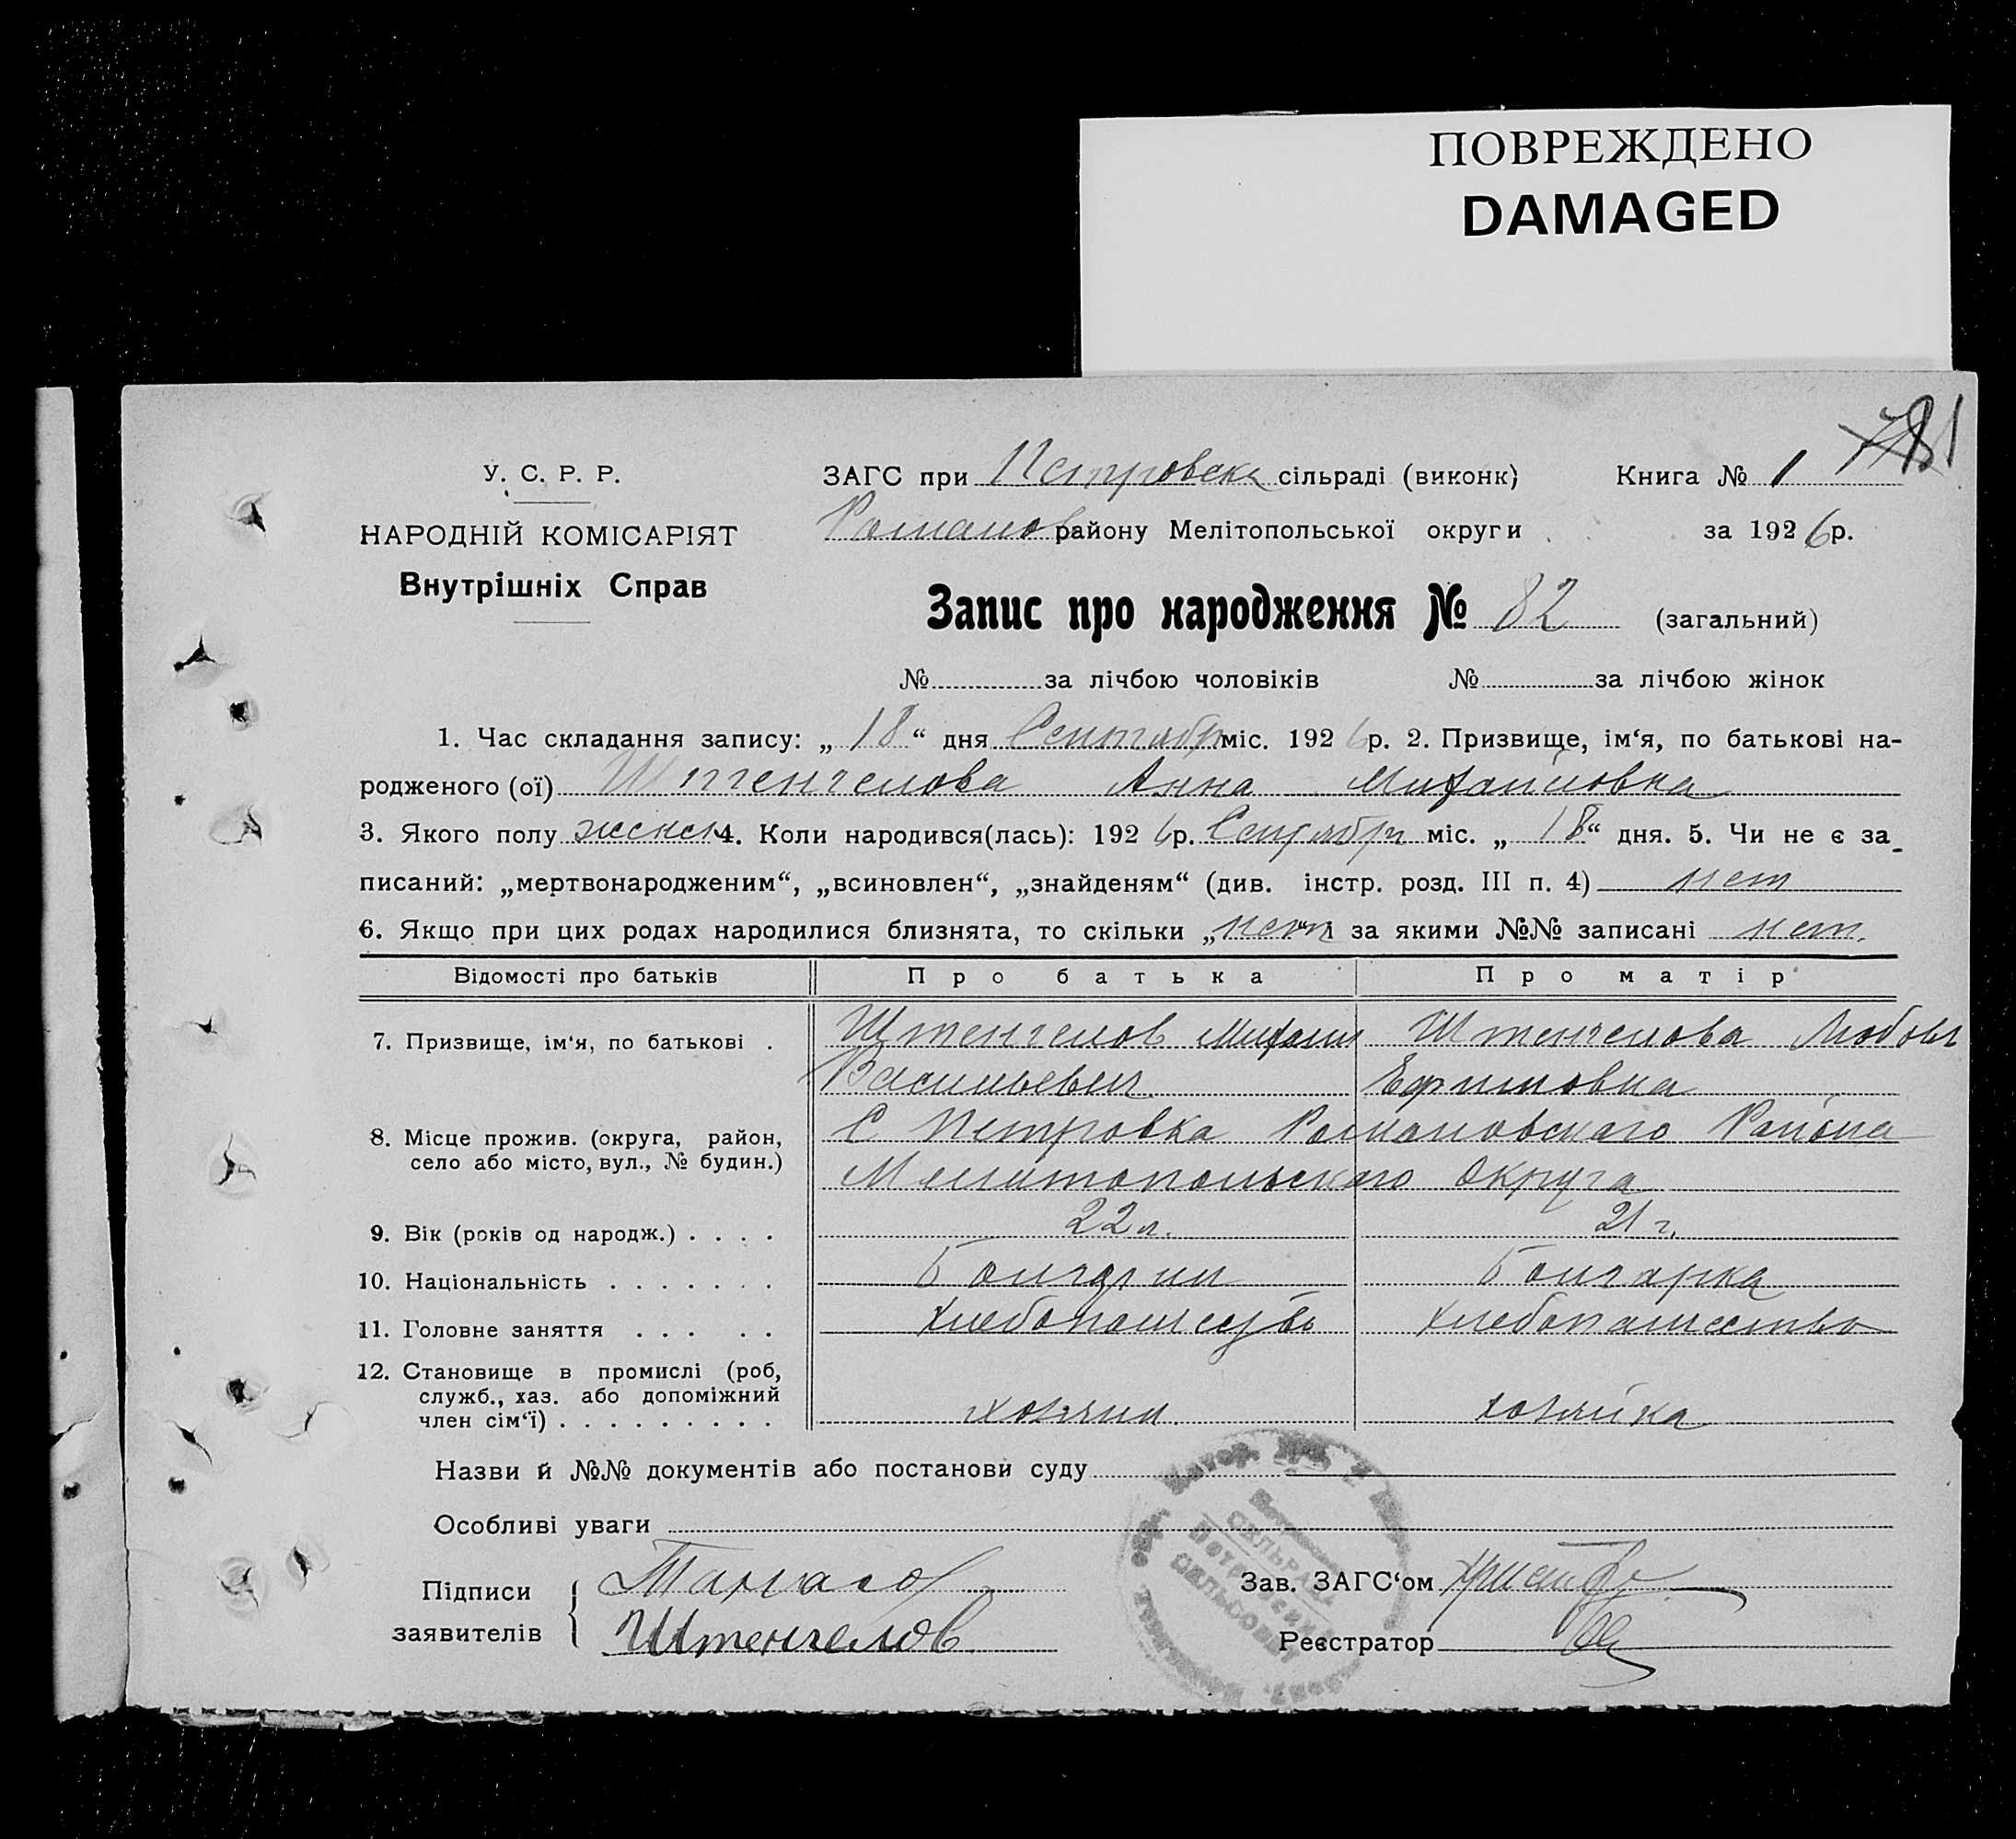 ПОВРЕЖДЕНО
DAMAGED
781
У. С. Р. Р.
НАРОДНІЙ КОМІСАРІЯТ
Внутрішніх Справ
ЗАГС при Петровск сільраді (виконк) Книга № 1
Романов району Мелітопольської округи за 1926 р.
Запис про народження № 82 (загальний)
№ за лічбою чоловіків № за лічбою жінок
1. Час складання запису: „18“ дня Сентябр міс. 1926 р. 2. Призвище, ім‘я, по батькові на-
родженого (ої) Штенгелова Анна Михайловна
3. Якого полу женск 4. Коли народився(лась): 1926 р. Сентября міс. „18“ дня. 5. Чи не є за-
писаний: „мертвонародженим“, „всиновлен“, „знайденям“ (див. інстр. розд. III п. 4) нет
6. Якщо при цих родах народилися близнята, то скільки „нет“ і за якими №№ записані нет.
Відомості про батьків Про батька Про матір
7. Призвище, ім‘я, по батькові . Штенгелов Михаил Штенгелова Любовь
Васильевич Ефимовна
8. Місце прожив. (округа, район, С Петровка Романовскаго Района
село або місто, вул., № будин.) Мелитопольскаго Округа
9. Вік (років од народж.) . . . . 22 л. 21 г.
10. Національність . . . . . . . Болгарин Болгарка
11. Головне заняття . . . . . Хлебопашество Хлебопашество
12. Становище в промислі (роб,
служб., хаз. або допоміжний
член сім‘ї) . . . . . . . . . хозяин хозяйка
Назви й №№ документів або постанови суду
Особливі уваги
Підписи
заявителів
Штенгелов
Зав. ЗАГС‘ом
Реєстратор
СІЛЬРАДА
СЕЛЬСОВЕТ